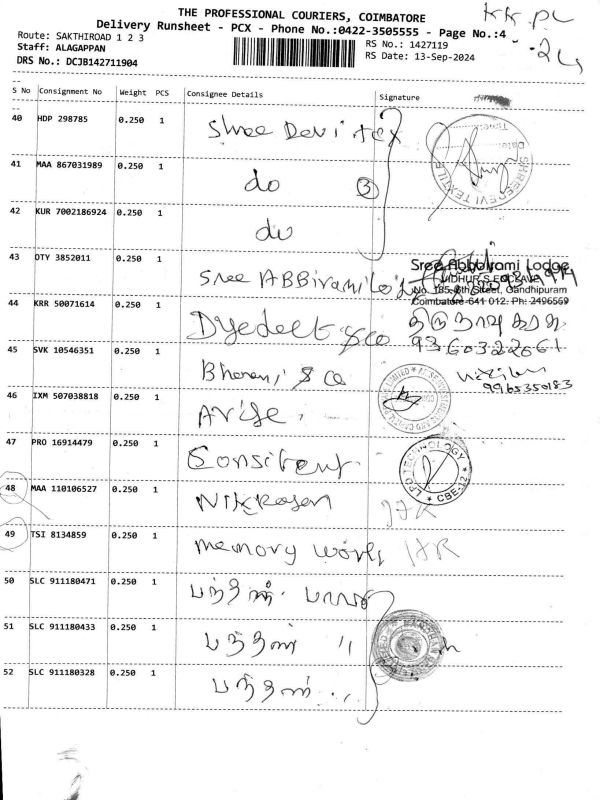 THE PROFESSIONAL COURIERS, COIMBATORE
Delivery Runsheet - PCX - Phone No.:0422-3505555 - Page No.:4
Route: SAKTHIROAD 1 2 3
RS No.: 1427119
Staff: ALAGAPPAN
RS Date: 13-Sep-2024
DRS No.: DCJB142711904
S No Consignment No Weight PCS Consignee Details Signature
40 HDP 298785 0.250 1 Shree Devi tex
41 MAA 867031989 0.250 1 do 3
42 KUR 7002186924 0.250 1 do
SHREEDEVI TEXTILE
Date:
Time:
43 OTY 3852011 0.250 1 Sree ABBirami Lo
Sree Abbirami Lodge
No. 185, 6th Street, Gandhipuram
Coimbatore-641 012. Ph: 2496569
44 KRR 50071614 0.250 1 & co
9360322061
45 SVK 10546351 0.250 1 Bharani & co
9965350183
46 IXM 507038818 0.250 1 Arise
47 PRO 16914479 0.250 1
LPD TECHNOLOGY
CBE-12
48 MAA 110106527 0.250 1
49 TSI 8134859 0.250 1 memory works
50 SLC 911180471 0.250 1 பந்தன்
51 SLC 911180433 0.250 1 பந்தன் "
52 SLC 911180328 0.250 1 பந்தன்